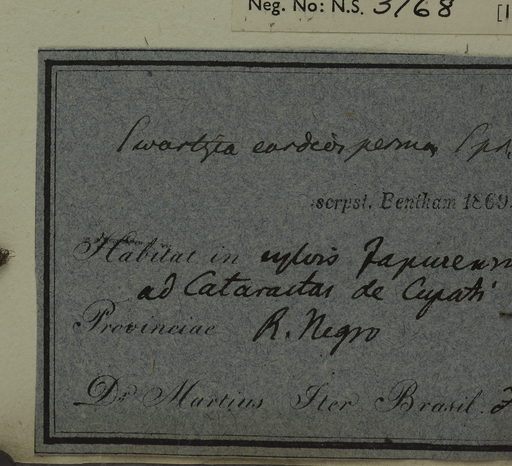 Neg. No: N.S. 3768 [1
Swartzia cardiosperma Spr.
scrpst. Bentham 1869.
Habitat in sylvis Japurens
ad Cataractas de Cupati
Provinciae R. Negro
Dr Martius Iter Brasil.